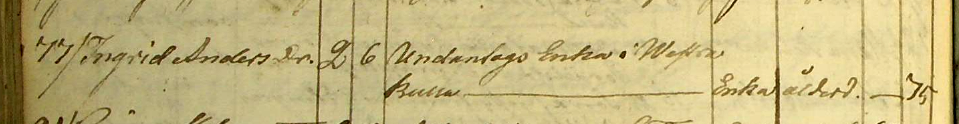 77/ Ingrid Anders Dr. 2 6 Undantags Enka i Westra
Kulla — Enka ålderd. — 75